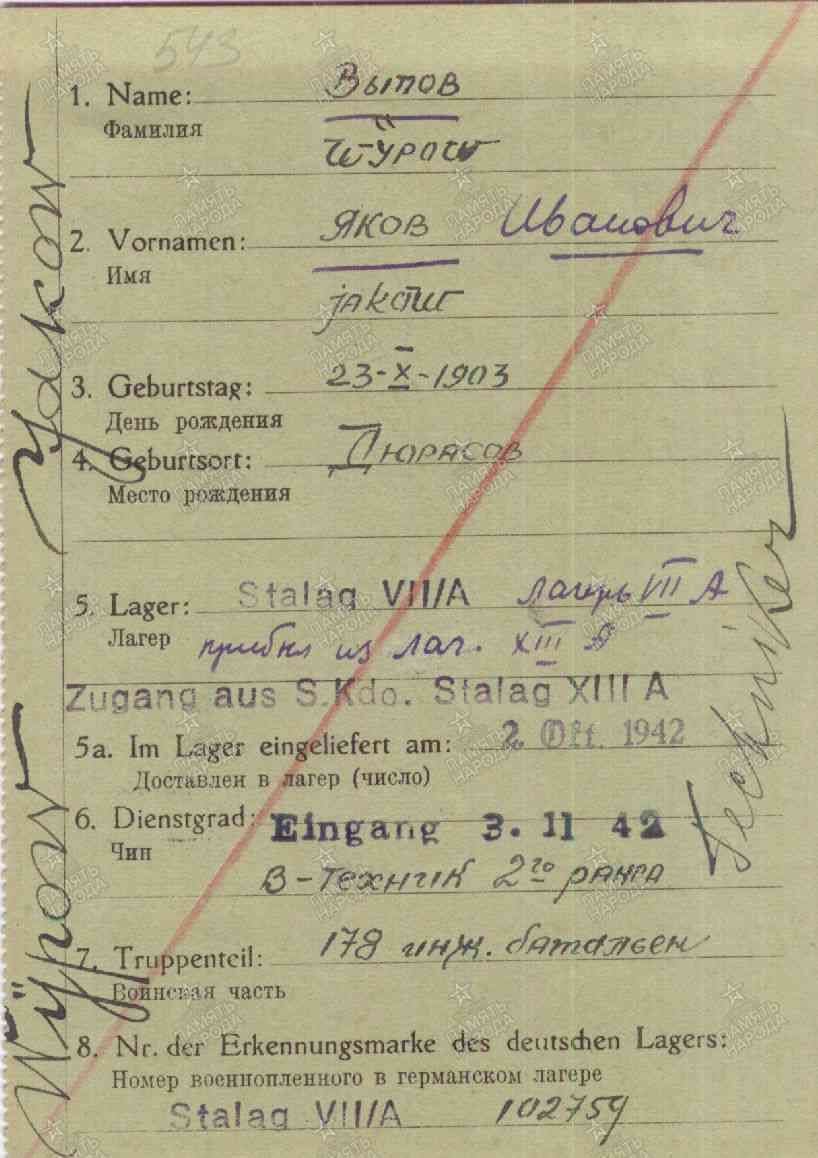 543
1. Name: Вытов
Фамилия
Wÿpow
2. Vornamen: Яков Иванович
Имя
jakow
3. Geburtstag: 23-X-1903
День рождения
4. Geburtsort: Дюрасов
Место рождения
5. Lager: Stalag VII/A лагерь VII A
Лагер прибыл из лаг. XIII A
Zugang aus S.Kdo. Stalag XIII A
5a. Im Lager eingeliefert am: 2. Okt. 1942
Доставлен в лагер (число)
6. Dienstgrad: Eingang 3. 11 42
Чин
В-техник 2го ранга
7. Truppenteil: 178 инж. батальен
Воинская часть
8. Nr. der Erkennungsmarke des deutschen Lagers:
Номер военнопленного в германском лагере
Stalag VII/A 102759
Wÿpow
Techniker
ПАМЯТЬ НАРОДА